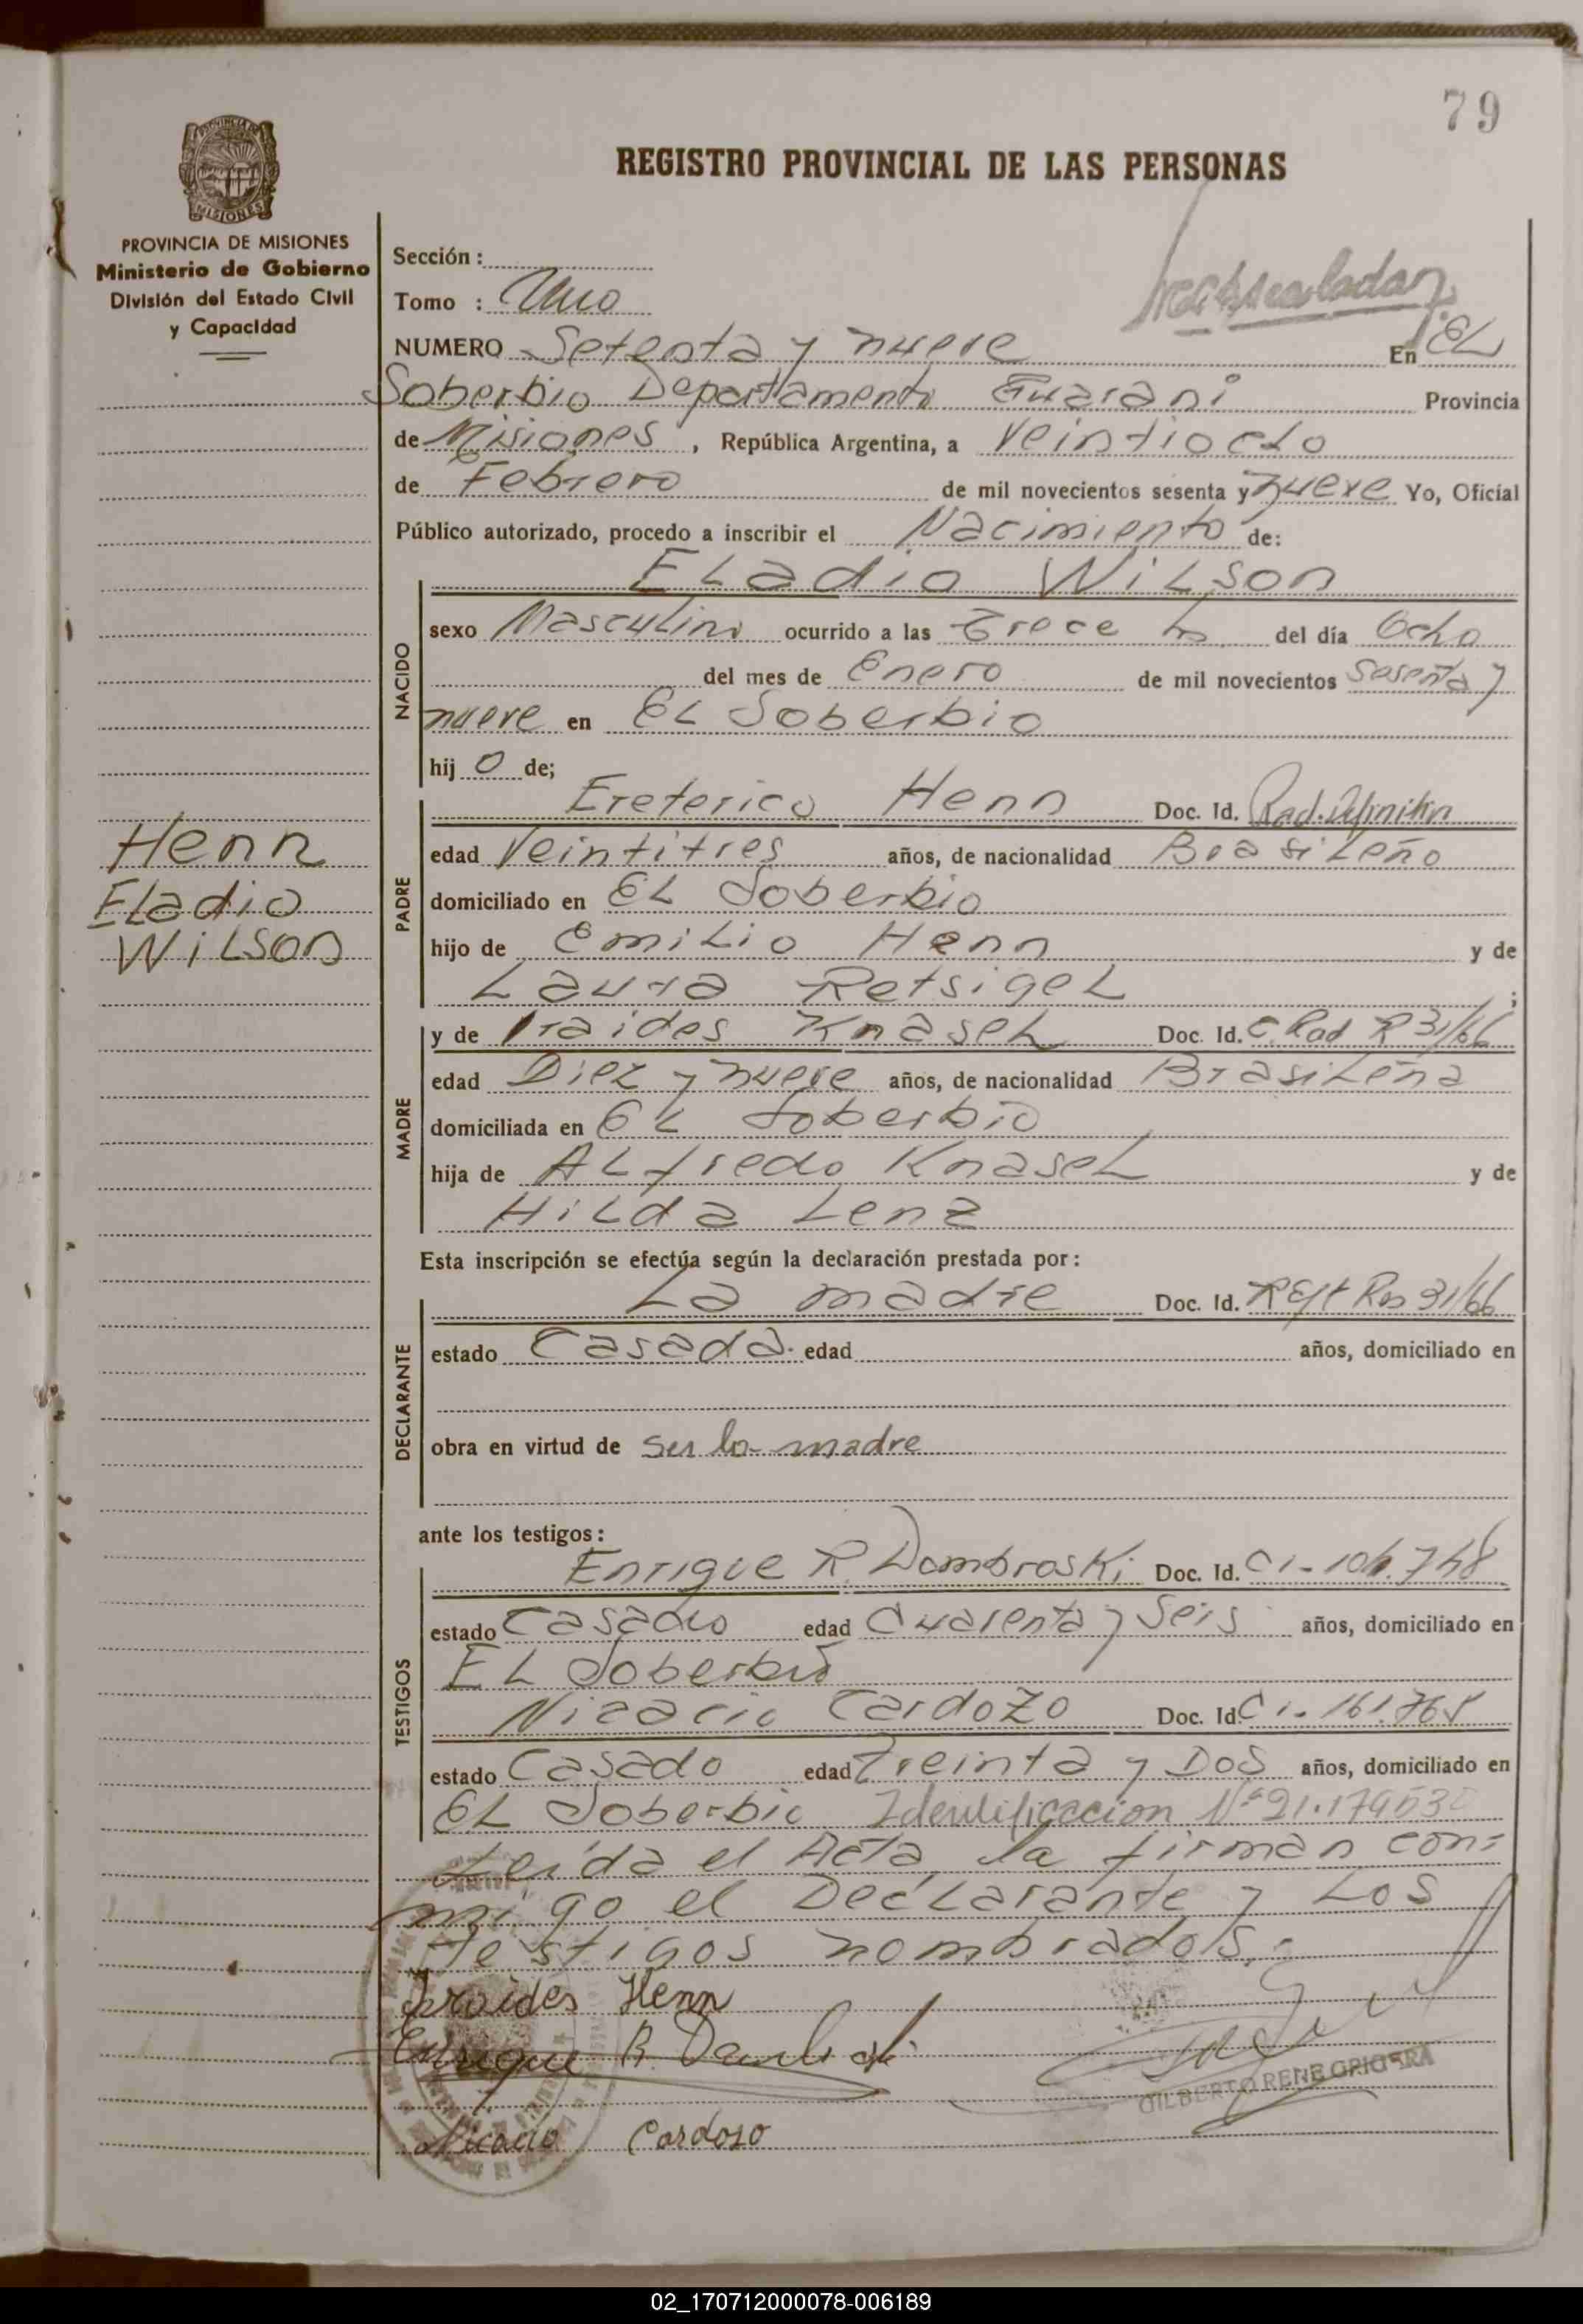 79
REGISTRO PROVINCIAL DE LAS PERSONAS
PROVINCIA DE MISIONES
Ministerio de Gobierno
División del Estado Civil
y Capacidad
Sección:
Tomo : Uno
NUMERO Setenta y nueve En EL
Soberbio Departamento Guarani Provincia
de Misiones, República Argentina, a Veintiocho
de Febrero de mil novecientos sesenta y nueve Yo, Oficial
Público autorizado, procedo a inscribir el Nacimiento de:
ELadio WiLson
NACIDO
sexo Masculino ocurrido a las Trece hs del día Ocho
del mes de Enero de mil novecientos Sesenta y
nueve en EL Soberbio
hijo de;
Henn
ELadio
WiLson
PADRE
Ereterico Henn Doc. Id. Rad. Definitiva
edad Veintitres años, de nacionalidad BrasiLeño
domiciliado en EL Soberbio
hijo de EmiLio Henn y de
Laura RetsigeL ;
MADRE
y de Iraides KnaseL Doc. Id. C. Rad R 31/66
edad Diez y nueve años, de nacionalidad BrasiLeña
domiciliada en EL Soberbio
hija de ALfredo KnaseL y de
HiLda Lenz
Esta inscripción se efectúa según la declaración prestada por:
DECLARANTE
La madre Doc. Id. 31/66
estado Casada. edad años, domiciliado en
obra en virtud de ser la madre
ante los testigos:
TESTIGOS
Enrique R. Dombroski Doc. Id. CI-104.748
estado Casado edad Cuarenta y Seis años, domiciliado en
EL Soberbio
Nicacio Cardozo Doc. Id. CI-161.768
estado Casado edad Treinta y Dos años, domiciliado en
EL Soberbio Identificacion Nº 21.179.530
Leida el Acta, la firman con=
migo el DecLarante y Los
testigos nombrados.-
Iraides Henn
Enrique R. Dambroski
Nicacio Cardozo
GILBERTO RENE GRIGERA
02_170712000078-006189